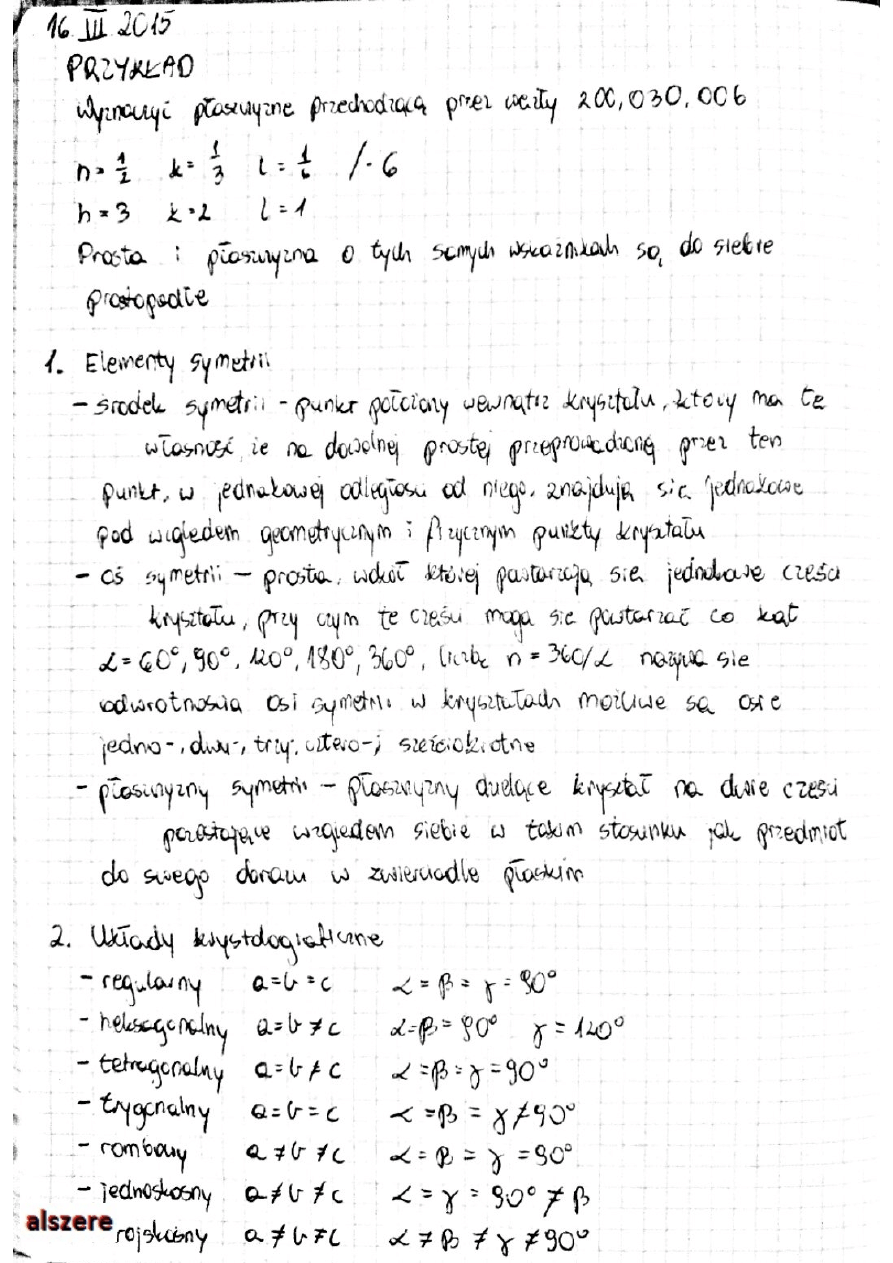 16. III 2015
PRZYKŁAD
Wyznaczyć płaszczyznę przechodzącą przez węzły 200, 030, 006
h = 1/2 k = 1/3 l = 1/6 /· 6
h = 3 k = 2 l = 1
Prosta i płaszczyzna o tych samych wskaźnikach są do siebie
prostopadłe
1. Elementy symetrii
- środek symetrii - punkt położony wewnątrz kryształu, który ma tę
własność, że na dowolnej prostej przeprowadzonej przez ten
punkt, w jednakowej odległości od niego, znajdują się jednakowe
pod względem geometrycznym i fizycznym punkty kryształu
- oś symetrii - prosta, wokół której powtarzają się jednakowe części
kryształu, przy czym te części mogą się powtarzać co kąt
α = 60°, 90°, 120°, 180°, 360°, liczbę n = 360/α nazywa się
odwrotnością osi symetrii w kryształach możliwe są osie
jedno-, dwu-, trzy-, cztero- i sześciokrotne
- płaszczyzny symetrii - płaszczyzny dzielące kryształ na dwie części
pozostające względem siebie w takim stosunku jak przedmiot
do swego obrazu w zwierciadle płaskim
2. Układy krystalograficzne
- regularny a = b = c α = β = γ = 90°
- heksagonalny a = b ≠ c α = β = 90° γ = 120°
- tetragonalny a = b ≠ c α = β = γ = 90°
- trygonalny a = b = c α = β = γ ≠ 90°
- rombowy a ≠ b ≠ c α = β = γ = 90°
- jednoskośny a ≠ b ≠ c α = γ = 90° ≠ β
alszere
rójskośny a ≠ b ≠ c α ≠ β ≠ γ ≠ 90°